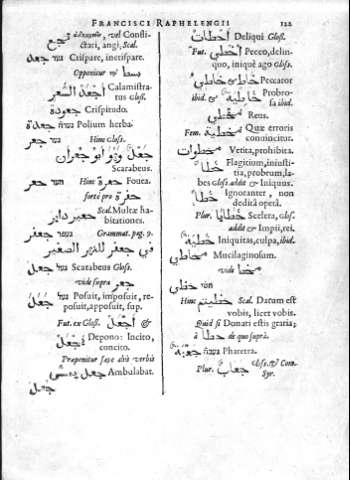 FRANCISCI RAPHELENGII 122
تجع vel Constictari, angi, Scal.
جعد Crispare, incrispare.
Opponitur
أجعد الشعر Calamistratus Gloss.
جعودة Crispitudo.
جعدة Polium herba.
جعر Hinc Gloss.
جعل وابو جعران
Scarabeus.
حعر Hinc حفرة Fovea.
forte pro
حعبر دابر Scal. Multæ habitationes.
جعفر Grammat. pag. 9.
في جعفر للنهر الصغير
جعل Scarabeus Gloss.
vide supra جعر
جعل Posuit, imposuit, reposuit, apposuit, sup.
Fut. ex Gloss. أجعل &
تجعل Depono: Incito, concito.
Præponitur sæpe aliis verbis
جعل يمشي Ambulabat.
جعل
أخطات Deliqui Gloss.
Fut. أخطي Pecco, delinquo, iniquè ago Gloss.
خاط & خاطي Peccator
ibid. & خاطية Probrosa ibid.
مخطي Reus.
Fem. مخطية Quæ erroris convincitur.
محطورات Vetita, prohibita.
خطا Flagitium, iniustitia, probrum, labes Gloss. addit & Iniquus.
خطا Ignoranter, non dedità operâ.
Plur. خطايا Scelera, Gloss. addit & Impii, rei.
خطية Iniquitas, culpa, ibid.
مخاطي Mucilaginosum.
vide مخط
خطي
خطيتم Hinc Scal. Datum est vobis, licet vobis.
Quid si Donati estis gratia;
à حظا de quo suprà.
جعبة Pharetra.
Plur. جعاب Gloss. & Com. Syr.